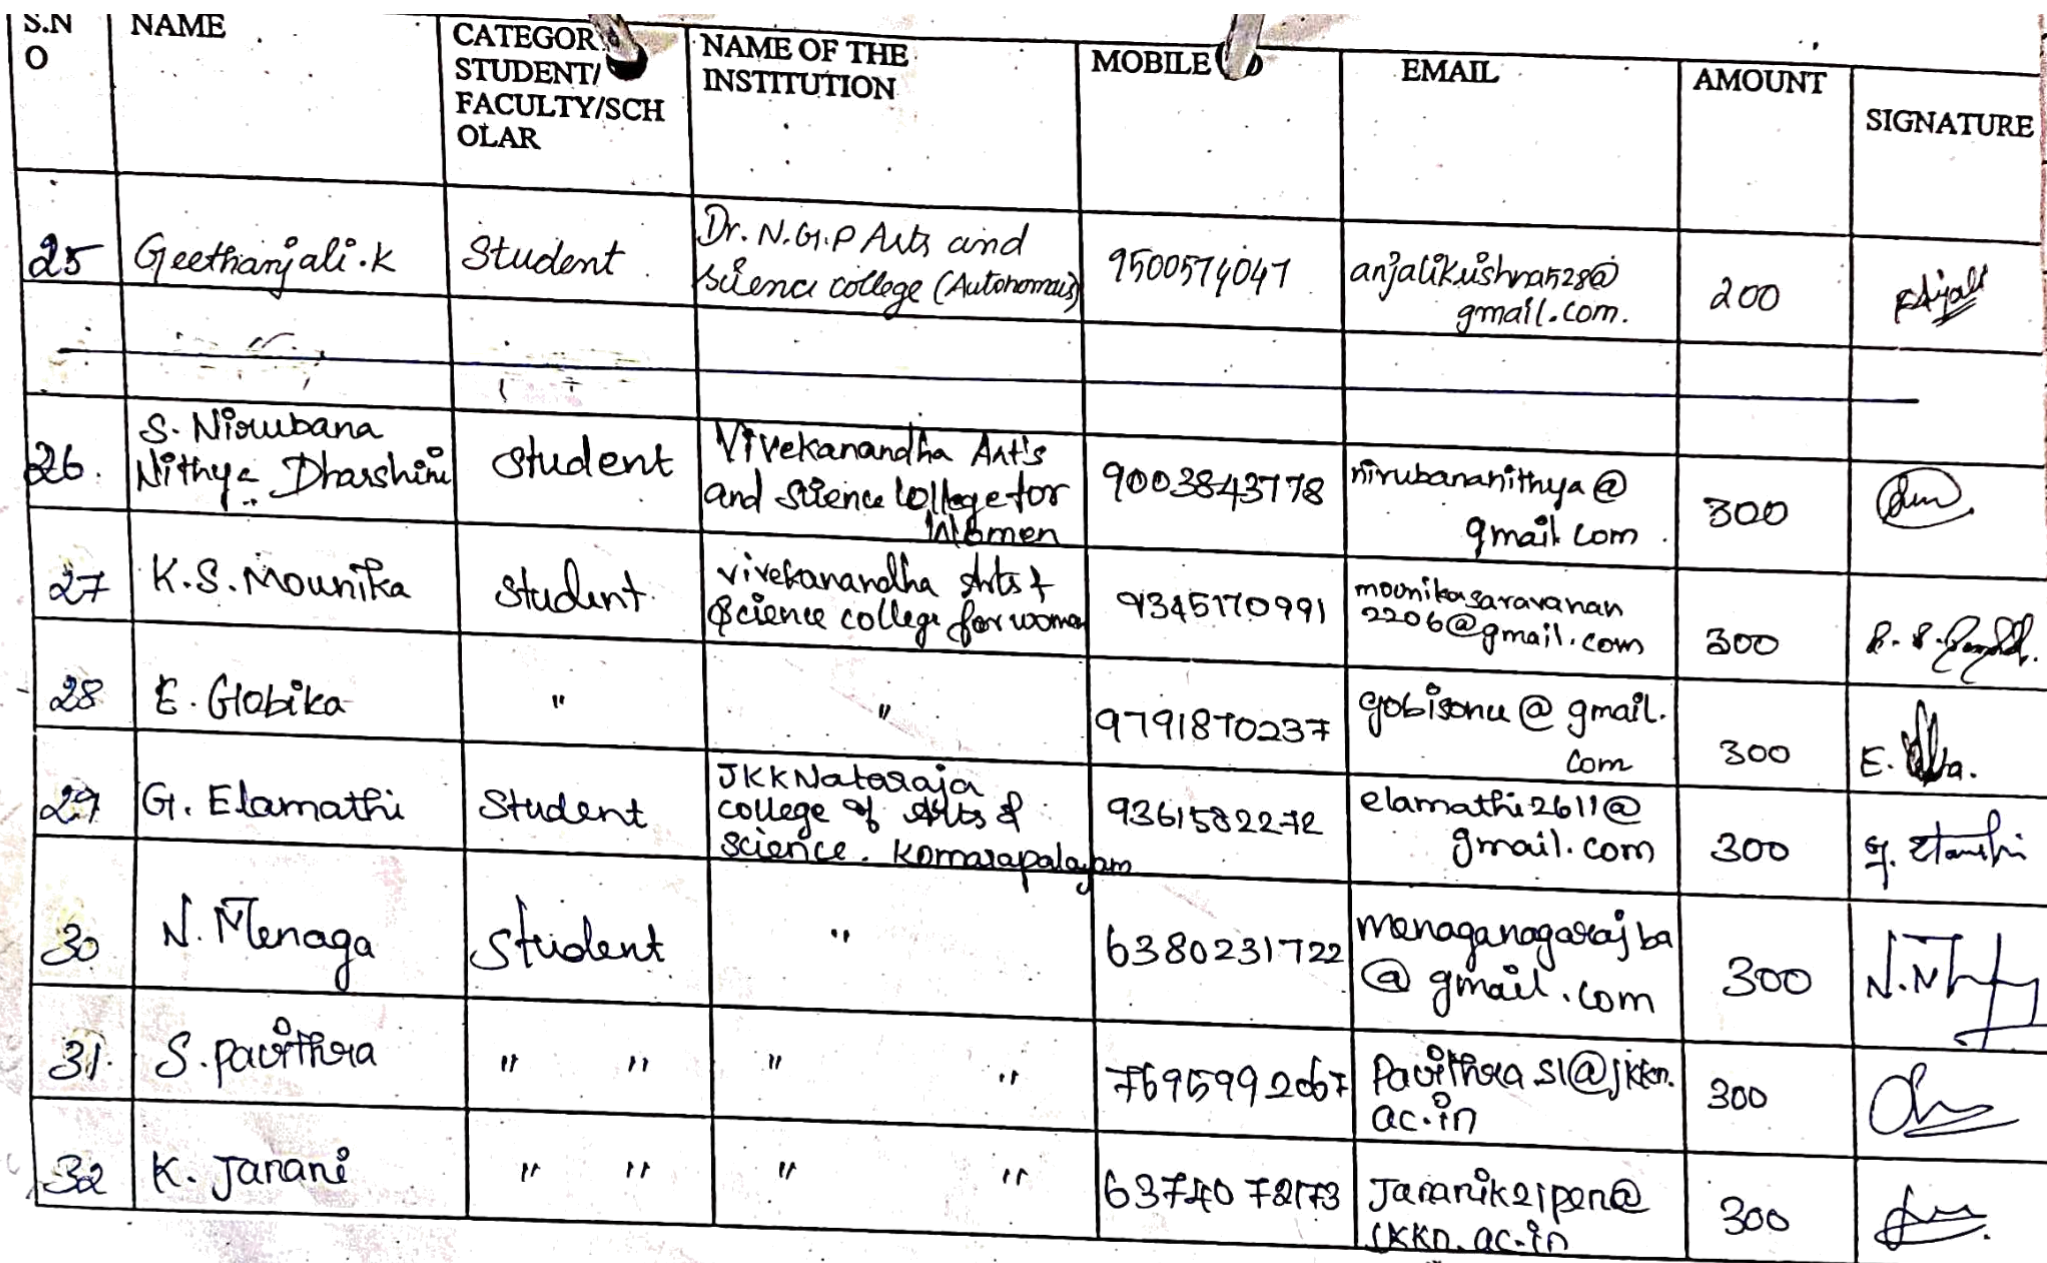 S.N
O
NAME
CATEGOR
STUDENT/
FACULTY/SCH
OLAR
NAME OF THE
INSTITUTION
MOBILE
EMAIL
AMOUNT
SIGNATURE
25
Geethanjali.K
Student
Dr. N.G.P Arts and
science college (Autonomous)
9500574047
anjalikrishna528@
gmail.com.
200
26.
S. Nirubana
Nithya Dharshini
Student
Vivekanandha Art's
and Science College for
Women
9003843778
nirubananithya@
gmail.com.
300
27
K.S. Mounika
Student
vivekanandha Arts &
Science college for women
9345170991
mounikasaravanan
2206@gmail.com
300
28
E. Gobika
"
"
9791870237
gobisonu@gmail.
com
300
E.
29
G. Elamathi
Student
JKKNataraja
college of Arts &
Science. Komarapalayam
9361582272
elamathi2611@
gmail.com
300
30
N. Menaga
Student
"
6380231722
menaganagarajba
@gmail.com
300
31.
S. Pavithra
" "
" "
7695992067
Pavithra S1@jkkn.
ac.in
300
32
K. Janani
" "
" "
6374072173
Jananik21pen@
jkkn.ac.in
300